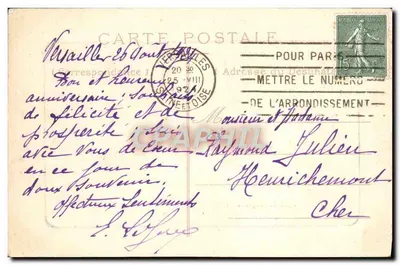 CARTE POSTALE
Versailles 26 Août 1921
VERSAILLES
20
25 · VIII
SEINE ET OISE
POUR PARIS
METTRE LE NUMERO
DE L'ARRONDISSEMENT
Bon et heureux
anniversaire, souhaits
de félicité et de
prospérité. Suis
avec Vous de Cœur
en ce jour de
doux souvenir,
affectueux sentiments
Monsieur et Madame
Raymond Julien
Henrichemont
Cher